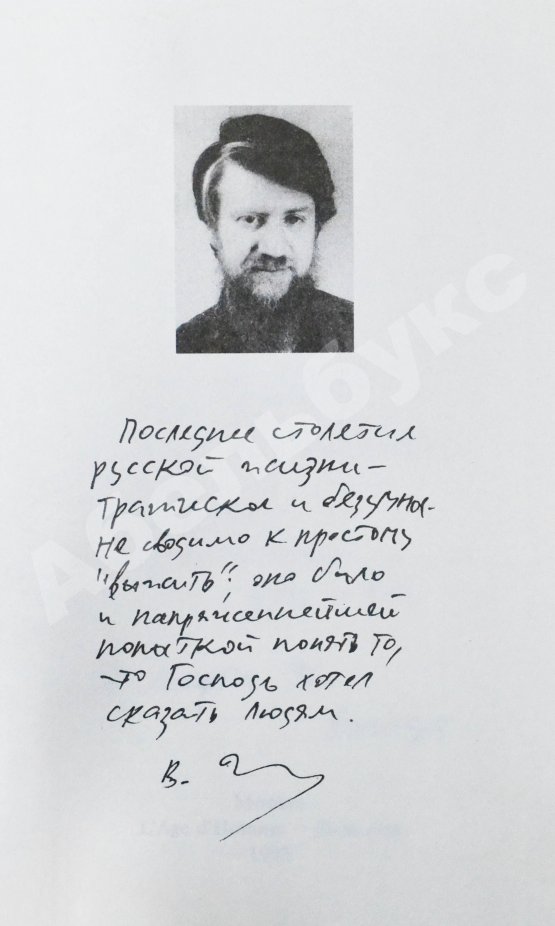 Последнее столетие
русской жизни –
трагическое и безумное
не сводимо к простому
"выжить", оно было
и напряженнейшей
попыткой понять то,
что Господь хотел
сказать людям.
В.